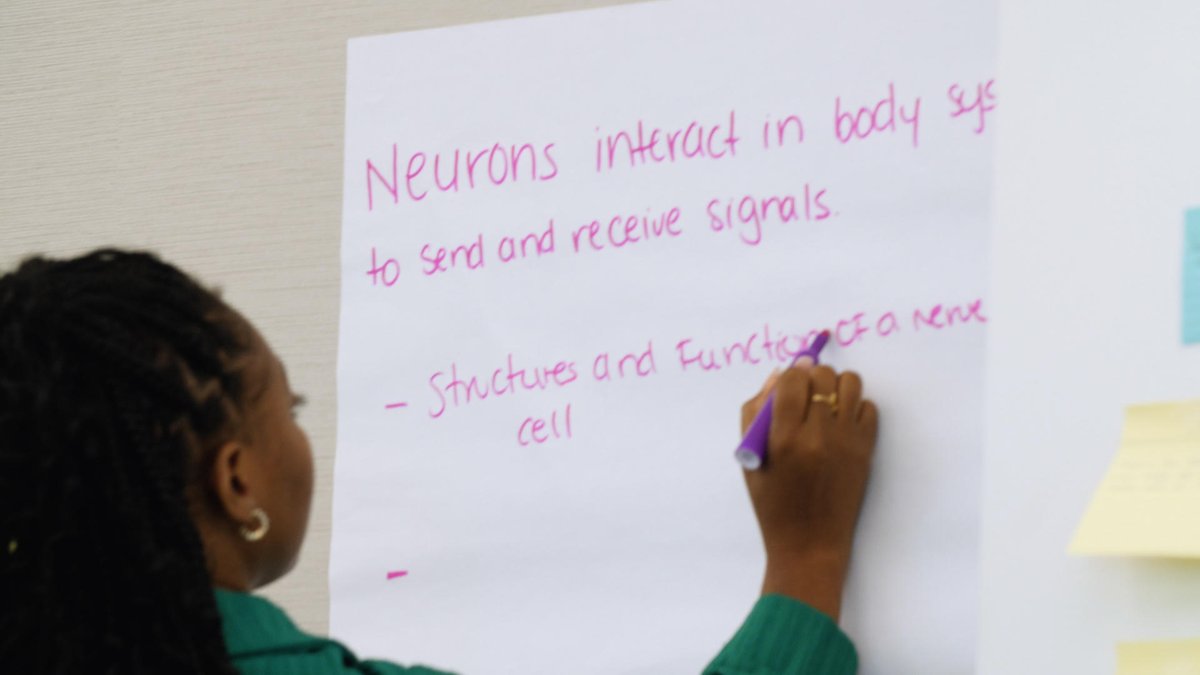 Neurons interact in body sys
to send and receive signals.
- Structures and Function of a nerve
cell
-